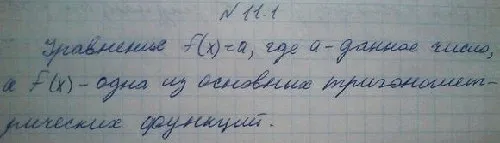 № 11.1
Уравнение f(x)=a, где a-данное число,
а f(x)-одна из основных тригономет-
рических функций.